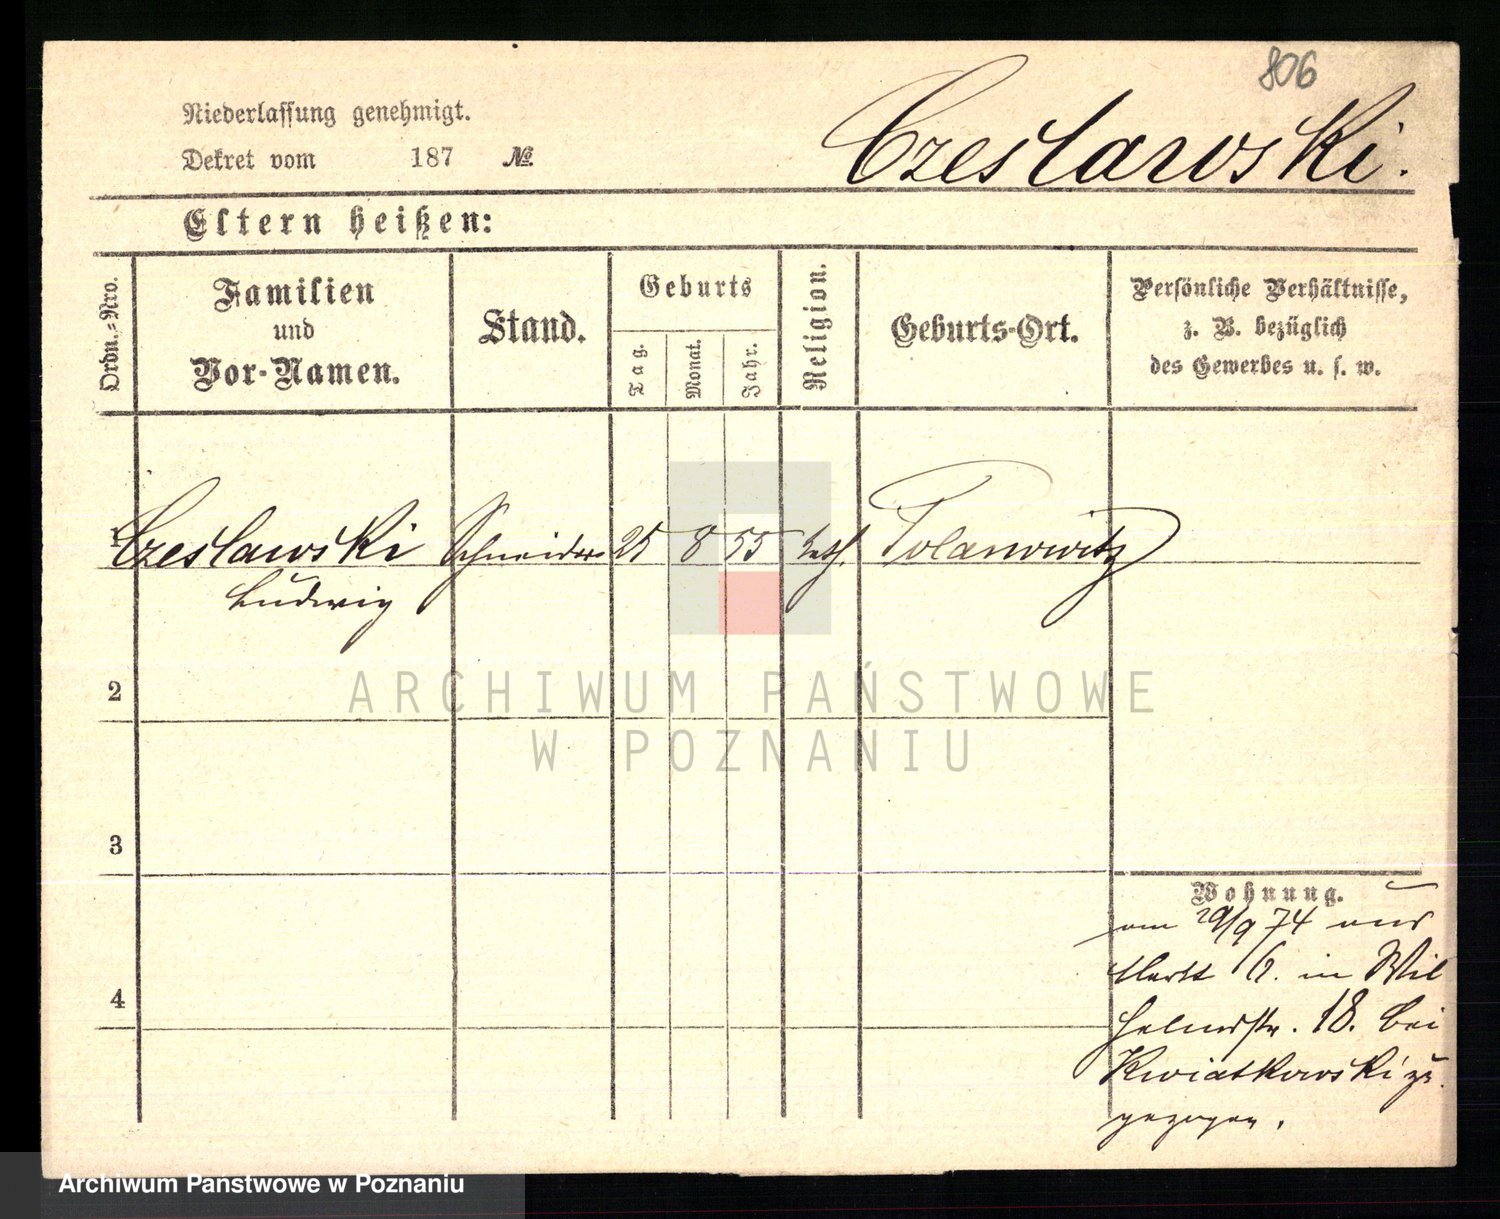 806
Niederlassung genehmigt.
Czeslawski.
Dekret vom 187 №
Eltern heißen:
Ordn.=Nro.
Familien
und
Vor-Namen.
Stand.
Geburts
Tag.
Monat.
Jahr.
Religion.
Geburts-Ort.
Persönliche Verhältnisse,
z. B. bezüglich
des Gewerbes u. s. w.
1 Czeslawski Schneider 25 8 55 kath.
Ludwig
ARCHIWUM PAŃSTWOWE
W POZNANIU
2
3
4
Wohnung.
am 29/9 74 aus
Markt in Wil
helmstr. 18. bei
Kwiatkowski zu
gezogen.
Archiwum Państwowe w Poznaniu